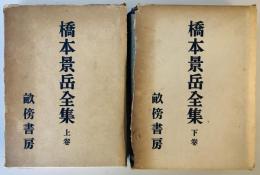 橋本景岳全集
上卷
畝傍書房
橋本景岳全集
下卷
畝傍書房